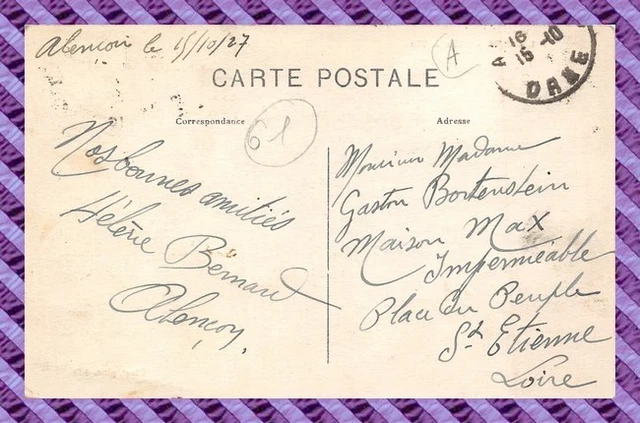 Alençon le 15/10/27
A
16
15-10
ORNE
CARTE POSTALE
Correspondance
61
Adresse
Nos bonnes amitiés
Hélène Bernard
Alençon.
Monsieur Madame
Gaston Bortenstein
Maison Max
Imperméable
Place du Peuple
St Etienne
Loire